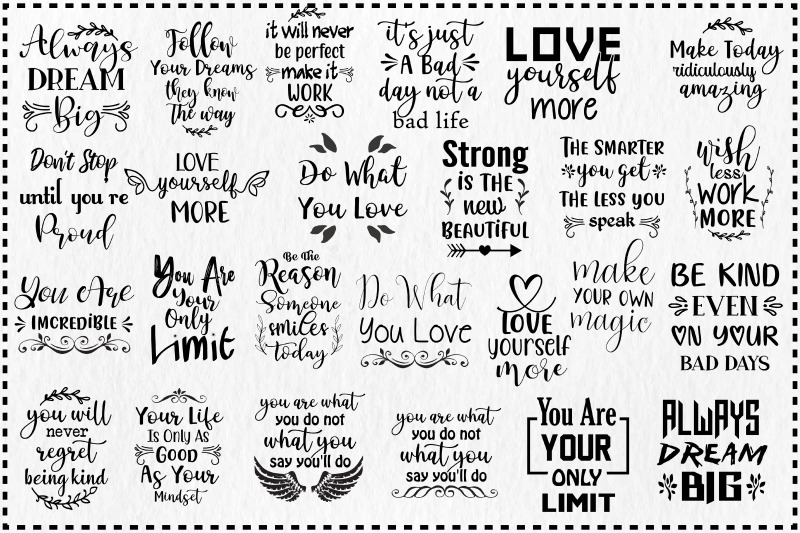 Always
DREAM
Big
Follow
Your Dreams
they know
The way
it will never
be perfect
make it
WORK
it's just
A Bad
day not a
bad life
LOVE
yourself
more
Make Today
ridiculously
amazing
Don't Stop
until you re
Proud
LOVE
yourself
MORE
Do What
You Love
Strong
is THE
new
BEAUTIFUL
THE SMARTER
you get
THE LESS YOU
speak
wish
less
WORK
MORE
You Are
INCREDIBLE
You Are
Your
Only
Limit
Be The
Reason
Someone
smiles
today
Do What
You Love
LOVE
yourself
more
make
YOUR OWN
magic
BE KIND
EVEN
ON YOUR
BAD DAYS
you will
never
regret
being kind
Your Life
Is Only As
Good
As Your
Mindset
you are what
you do not
what you
say you'll do
you are what
you do not
what you
say you'll do
You Are
YOUR
ONLY
LIMIT
ALWAYS
DREAM
BIG